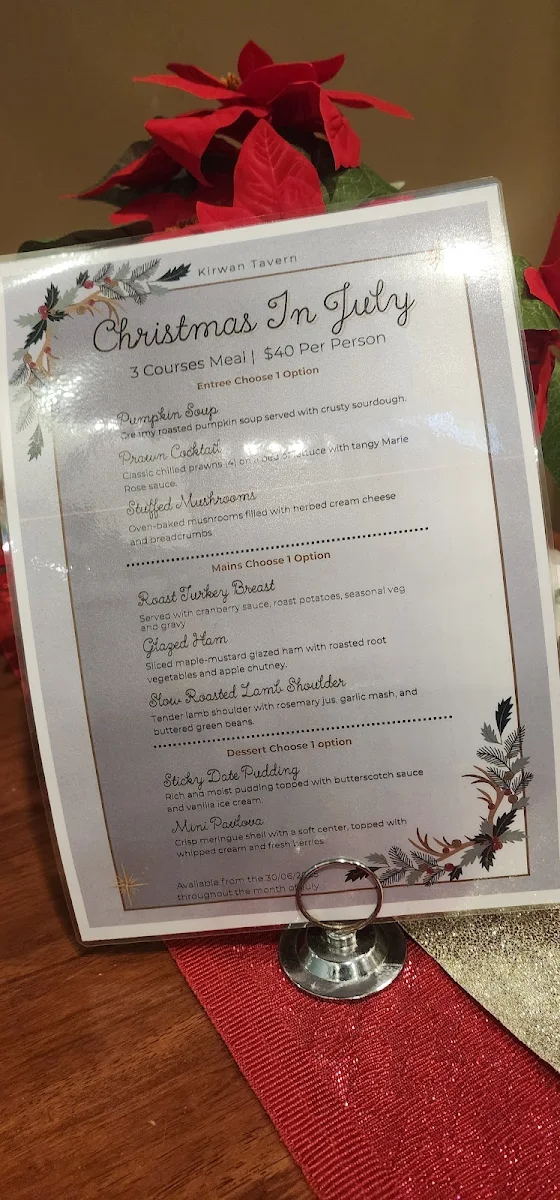 Kirwan Tavern
Christmas In July
3 Courses Meal | $40 Per Person
Entree Choose 1 Option
Pumpkin Soup
Creamy roasted pumpkin soup served with crusty sourdough.
Prawn Cocktail
Classic chilled prawns (4) on a bed of lettuce with tangy Marie
Rose sauce.
Stuffed Mushrooms
Oven-baked mushrooms filled with herbed cream cheese
and breadcrumbs
Mains Choose 1 Option
Roast Turkey Breast
Served with cranberry sauce, roast potatoes, seasonal veg
and gravy
Glazed Ham
Sliced maple-mustard glazed ham with roasted root
vegetables and apple chutney.
Slow Roasted Lamb Shoulder
Tender lamb shoulder with rosemary jus, garlic mash, and
buttered green beans.
Dessert Choose 1 option
Sticky Date Pudding
Rich and moist pudding topped with butterscotch sauce
and vanilla ice cream.
Mini Pavlova
Crisp meringue shell with a soft center, topped with
whipped cream and fresh berries.
Available from the
throughout the month of July